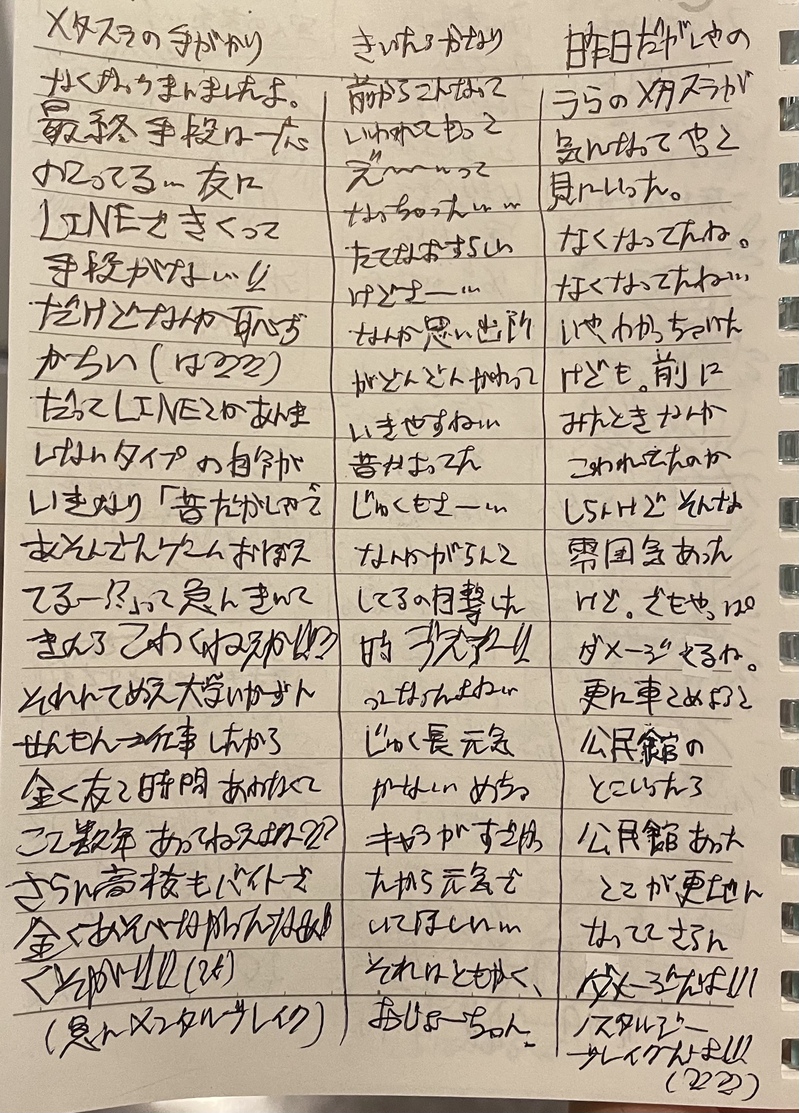 昨日だがしやの
うらのメタスラが
気になってやっと
見にいった。
なくなってたね。
なくなってたね…
いやわかっちゃいた
けども。前に
みたときなんか
こわれてたのか
しらんけど そんな
雰囲気あった
けど。でもやっぱ
ダメージきるね。
更に車とめようと
公民館の
とこいったら
公民館あった
とこが更地に
なっててさらに
ダメージだよ!!!
ノスタルジー
ブレイクだよ!!!
きいたらかなり
前からこんなって
いわれてもって
え〜〜〜って
なっちゃった……
たてなおすらしい
けどさー…
なんか思い出所
がどんどんかわって
いきやすね…
昔かよってた
じゅくもさー…
なんかがらんと
してるの目撃した
時 うえあー!!
ってなったよね…
じゅく長元気
かない めっちゃ
キャラがすごい
だから元気で
いてほしい…
それはともかく、
おじょーちゃん。
メタスラの手がかり
なくなっちまいましたよ。
最終手段は一応
のこってる…友に
LINEできくって
手段がない…!!
だけどなんか恥ず
かちい(はココロ)
だってLINEとかあんま
しないタイプの自分が
いきなり「昔だがしやで
あそんでたゲームおぼえ
てるー!?」って急にきいて
きたら こわくねえか!!!?
それにてめえ大学いかずに
せんもん→仕事したから
全く友と時間あわなくて
ここ数年あってねえよね???
さらに高校もバイトで
全くあそべなかったなあ!!
くそが!!!!
(急にメンタルブレイク)